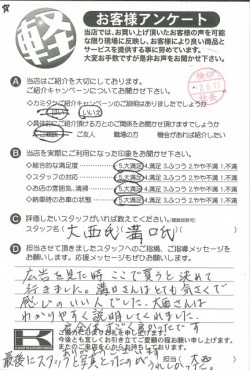 軽
お客様アンケート
当店では、お買い上げ頂いたお客様の声を可能
な限り現場に反映し、お客様により良い商品と
サービスを提供する事に努めています。
大変お手数ですが是非お声をお聞かせ下さい。
A 当店はご紹介を大切にしております。
ご紹介キャンペーンについてお聞かせ下さい。
ご紹介キャンペーンのご説明はありましたでしょうか
はい いいえ
具体的にご紹介頂ける方とのご関係をお聞かせ頂けますでしょうか
ご友人 職場の方 機会があれば紹介したい
B 当店を実際ご利用になった印象をお聞かせ下さい。
◇総合的な満足度 5.大満足 4.満足 3.ふつう 2.やや不満 1.不満
◇スタッフの対応 5.大満足 4.満足 3.ふつう 2.やや不満 1.不満
◇お店の雰囲気、清掃 5.大満足 4.満足 3.ふつう 2.やや不満 1.不満
◇納車時のお車の状態 5.大満足 4.満足 3.ふつう 2.やや不満 1.不満
C 評価したいスタッフがいれば教えてください。(複数回答可)
スタッフ名( 大西氏 溝口氏 )
D 担当させて頂きましたスタッフへのご指摘、ご指導メッセージを
お願いします。応援メッセージもぜひお願いします。
広告を見た時ここで買うと決めて
行きました。溝口さんはとても気さくで
感じのいい人でした。大西さんは
わかりやすく説明してくれました。
K
今後とも宜しくお引き立てご愛顧の程お願い申し上げます。
最後にスタッフと写真とったのがうれしかった。
担当( 大西